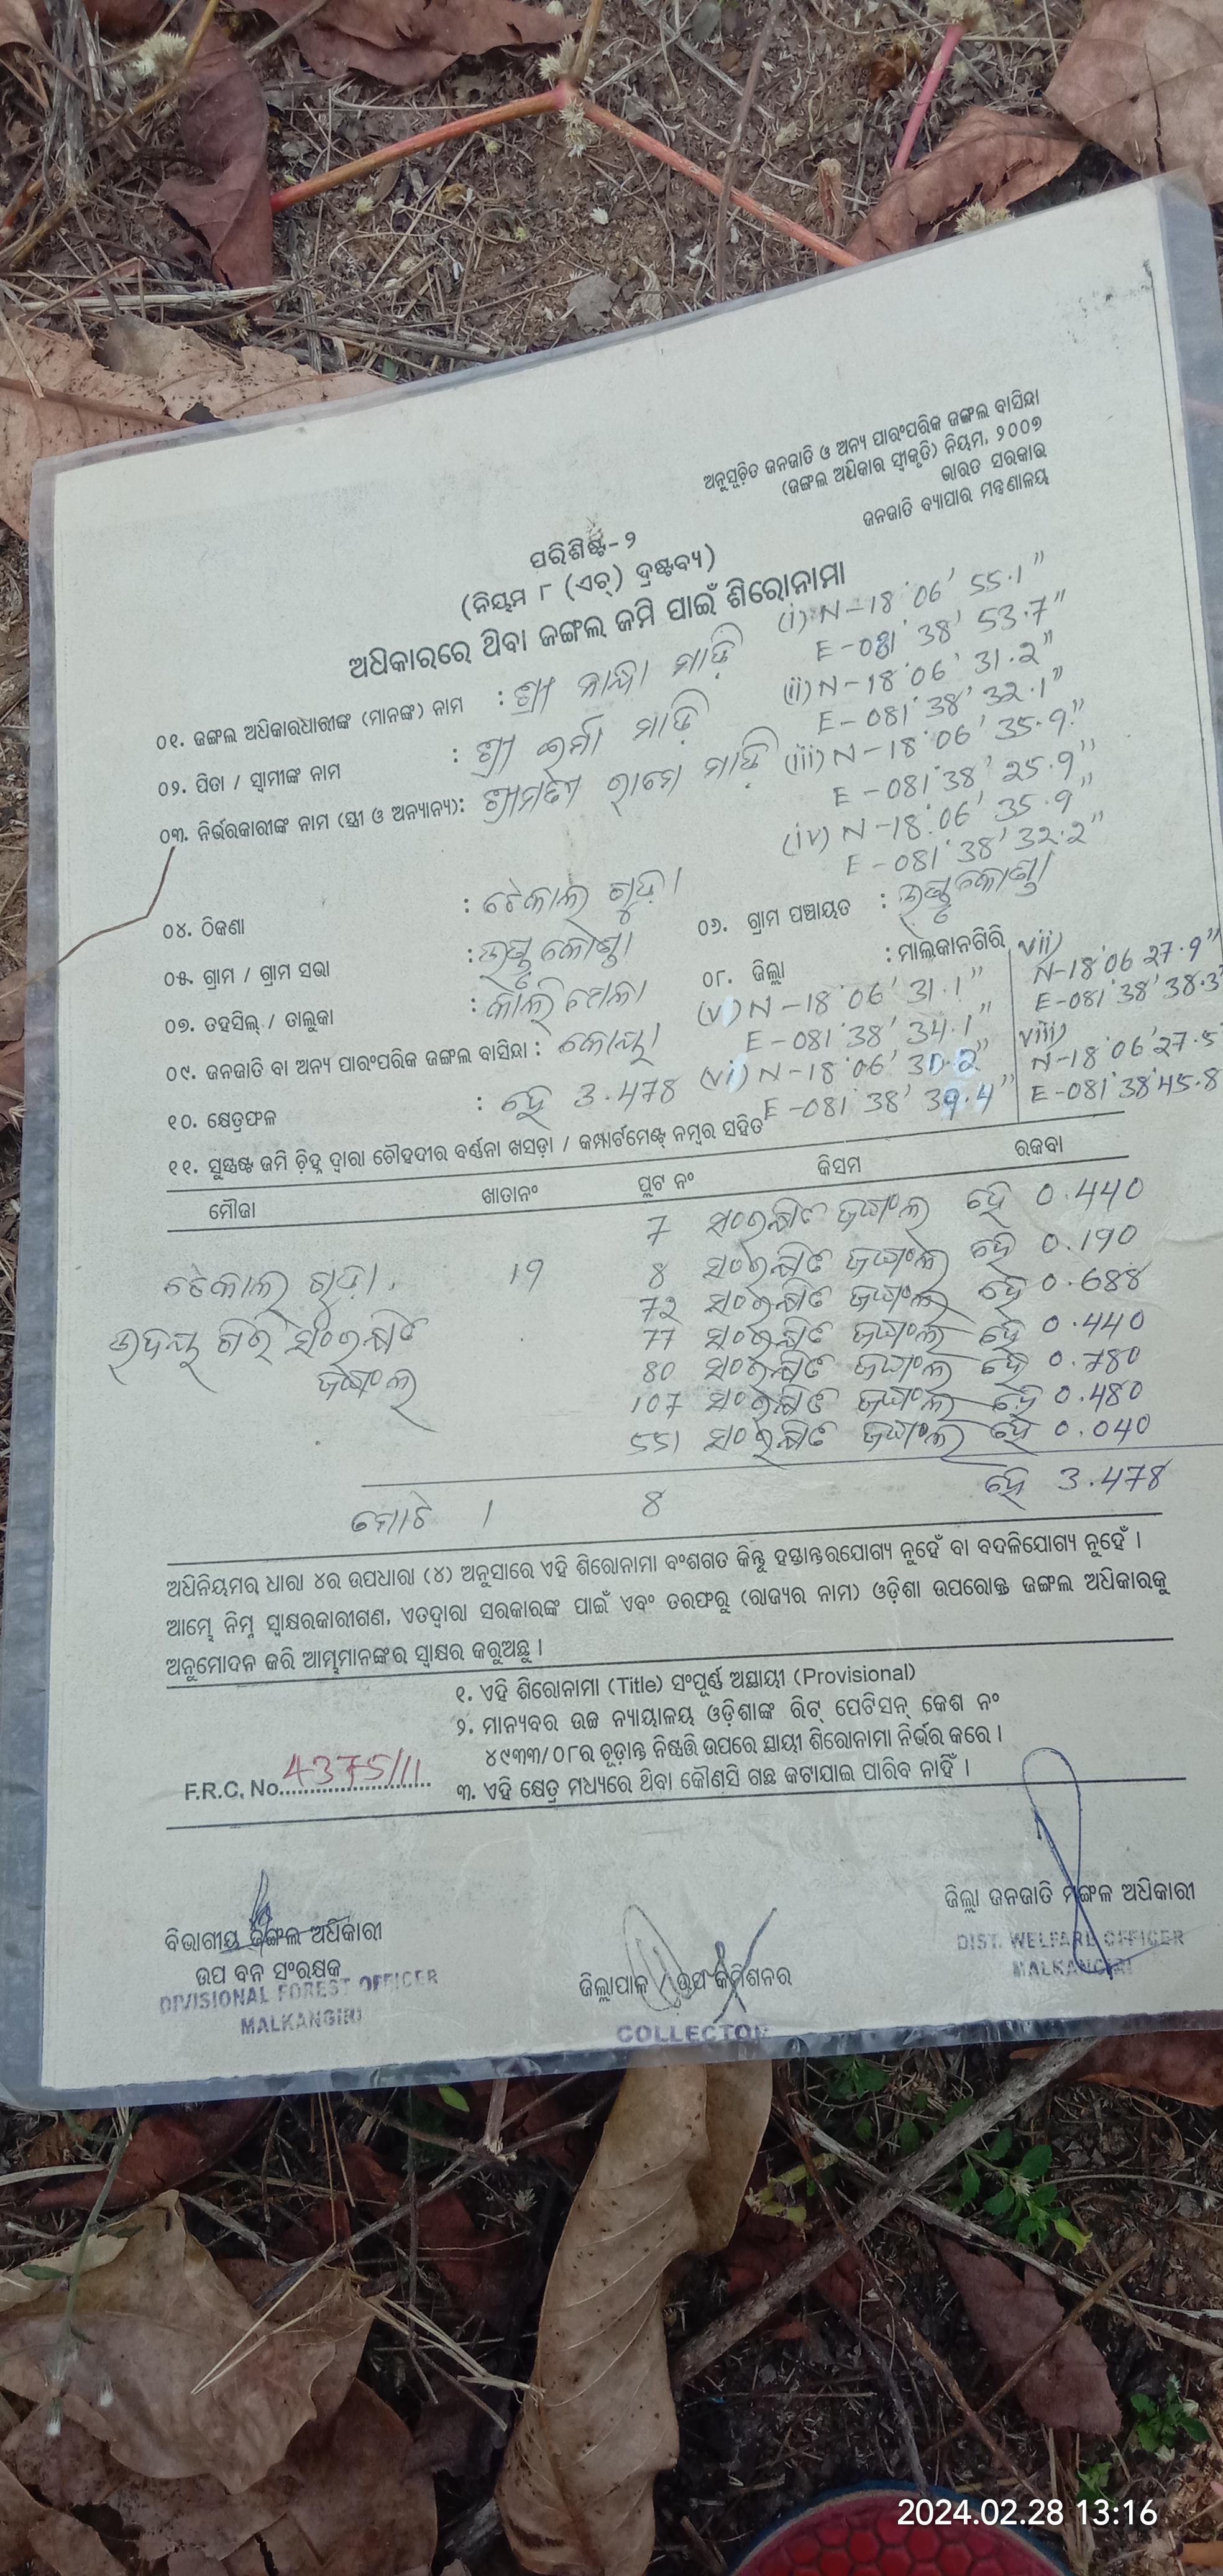 ଅନୁସୂଚିତ ଜନଜାତି ଓ ଅନ୍ୟ ପାରଂପରିକ ଜଙ୍ଗଲ ବାସିନ୍ଦା
(ଜଙ୍ଗଲ ଅଧିକାର ସ୍ୱୀକୃତି) ନିୟମ, ୨୦୦୭
ଭାରତ ସରକାର
ଜନଜାତି ବ୍ୟାପାର ମନ୍ତ୍ରଣାଳୟ
ପରିଶିଷ୍ଟ-୨
(ନିୟମ ୮ (ଏଚ୍) ଦ୍ରଷ୍ଟବ୍ୟ)
ଅଧିକାରରେ ଥିବା ଜଙ୍ଗଲ ଜମି ପାଇଁ ଶିରୋନାମା
(i) N-18°06' 55.1"
E-081°38' 53.7"
୦୧. ଜଙ୍ଗଲ ଅଧିକାରଧାରୀଙ୍କ (ମାନଙ୍କ) ନାମ : ଶ୍ରୀ ମାଡ଼ି
(ii) N-18°06' 31.2"
E-081°38' 32.1"
୦୨. ପିତା / ସ୍ୱାମୀଙ୍କ ନାମ : ଶ୍ରୀ ମାଡ଼ି
(iii) N-18°06' 35.9"
E-081°38' 25.9"
୦୩. ନିର୍ଭରକାରୀଙ୍କ ନାମ (ସ୍ତ୍ରୀ ଓ ଅନ୍ୟାନ୍ୟ): ଶ୍ରୀମତୀ ମାଡ଼ି
(iv) N-18°06' 35.9"
E-081°38' 32.2"
୦୪. ଠିକଣା : ଟେକାଲ ଗୁଡ଼ା
୦୫. ଗ୍ରାମ / ଗ୍ରାମ ସଭା : ୦୬. ଗ୍ରାମ ପଞ୍ଚାୟତ :
୦୭. ତହସିଲ୍ / ତାଲୁକା : କାଲିମେଳା ୦୮. ଜିଲ୍ଲା : ମାଲକାନଗିରି
(v) N-18°06' 31.1"
E-081°38' 34.1"
vii)
N-18°06 27.9"
E-081°38' 38.3
୦୯. ଜନଜାତି ବା ଅନ୍ୟ ପାରଂପରିକ ଜଙ୍ଗଲ ବାସିନ୍ଦା : କୋୟା
(vi) N-18°06'
E-081°38' 39.4"
viii)
N-18°06'27.5
E-081°38'45.8
୧୦. କ୍ଷେତ୍ରଫଳ : ହେ 3.478
୧୧. ସୁସ୍ପଷ୍ଟ ଜମି ଚିହ୍ନ ଦ୍ୱାରା ଚୌହଦୀର ବର୍ଣ୍ଣନା ଖସଡ଼ା / କମ୍ପାର୍ଟମେଣ୍ଟ୍ ନମ୍ବର ସହିତ
ମୌଜା ଖାତାନଂ ପ୍ଲଟ ନଂ କିସମ ରକବା
7 ସଂରକ୍ଷିତ ଜଙ୍ଗଲ ହେ 0.440
ଟେକାଲ ଗୁଡ଼ା. 19 8 ସଂରକ୍ଷିତ ଜଙ୍ଗଲ ହେ 0.190
72 ସଂରକ୍ଷିତ ଜଙ୍ଗଲ ହେ 0.688
ଉଦୟ ଗିରି ସଂରକ୍ଷିତ 77 ସଂରକ୍ଷିତ ଜଙ୍ଗଲ ହେ 0.440
ଜଙ୍ଗଲ 80 ସଂରକ୍ଷିତ ଜଙ୍ଗଲ ହେ 0.780
107 ସଂରକ୍ଷିତ ଜଙ୍ଗଲ ହେ 0.480
551 ସଂରକ୍ଷିତ ଜଙ୍ଗଲ ହେ 0.040
ମୋଟ 1 8 ହେ 3.478
ଅଧିନିୟମର ଧାରା ୪ର ଉପଧାରା (୪) ଅନୁସାରେ ଏହି ଶିରୋନାମା ବଂଶଗତ କିନ୍ତୁ ହସ୍ତାନ୍ତରଯୋଗ୍ୟ ନୁହେଁ ବା ବଦଳିଯୋଗ୍ୟ ନୁହେଁ ।
ଆମ୍ଭେ ନିମ୍ନ ସ୍ୱାକ୍ଷରକାରୀଗଣ, ଏତଦ୍ୱାରା ସରକାରଙ୍କ ପାଇଁ ଏବଂ ତରଫରୁ (ରାଜ୍ୟର ନାମ) ଓଡ଼ିଶା ଉପରୋକ୍ତ ଜଙ୍ଗଲ ଅଧିକାରକୁ
ଅନୁମୋଦନ କରି ଆମ୍ଭମାନଙ୍କର ସ୍ୱାକ୍ଷର କରୁଅଛୁ ।
୧. ଏହି ଶିରୋନାମା (Title) ସଂପୂର୍ଣ୍ଣ ଅସ୍ଥାୟୀ (Provisional)
୨. ମାନ୍ୟବର ଉଚ୍ଚ ନ୍ୟାୟାଳୟ ଓଡ଼ିଶାଙ୍କ ରିଟ୍ ପେଟିସନ୍ କେଶ ନଂ
୪୯୩୩/୦୮ର ଚୂଡ଼ାନ୍ତ ନିଷ୍ପତ୍ତି ଉପରେ ସ୍ଥାୟୀ ଶିରୋନାମା ନିର୍ଭର କରେ ।
F.R.C. No. 4375/11
୩. ଏହି କ୍ଷେତ୍ର ମଧ୍ୟରେ ଥିବା କୌଣସି ଗଛ କଟାଯାଇ ପାରିବ ନାହିଁ ।
ଜିଲ୍ଲା ଜନଜାତି ମଙ୍ଗଳ ଅଧିକାରୀ
DIST. WELFARE OFFICER
MALKANGIRI
ବିଭାଗୀୟ ଜଙ୍ଗଲ ଅଧିକାରୀ
ଉପ ବନ ସଂରକ୍ଷକ
DIVISIONAL FOREST OFFICER
MALKANGIRI
ଜିଲ୍ଲାପାଳ / ଉପ କମିଶନର
COLLECTOR
2024.02.28 13:16